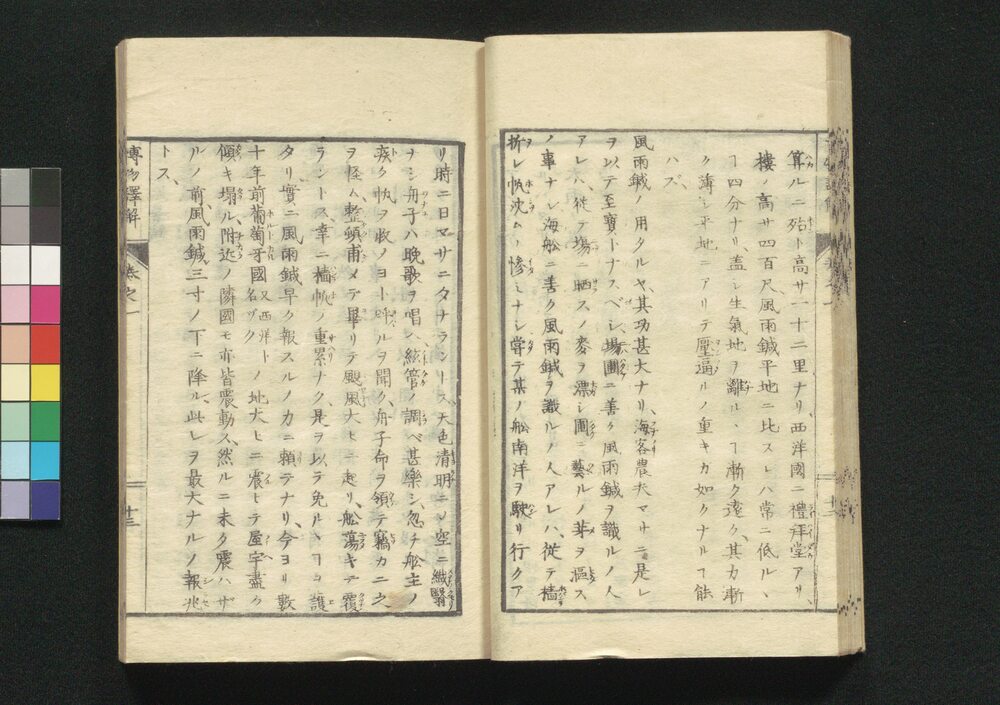 算ルニ殆ト高サ一十二里ナリ、西洋國ニ禮拜堂アリ、
樓ノ高サ四百尺風雨鍼平地ニ比スレハ常ニ低ル、
ヿ四分ナリ、蓋シ生氣地ヲ離ル、ヿ漸ク遠ク、其力漸
ク薄シ平地ニアリテ壓逼ルノ重キカ如クナルヿ能
ハズ、
風雨鍼ノ用タルヤ、其功甚大ナリ、海客農夫マサニ是レ
ヲ以テ至寶トナスベシ場圃ニ善ク風雨鍼ヲ識ルノ人
アレハ、徒ラ場ニ晒スノ麥ヲ漂シ圃ニ藝ルノ芽ヲ摳ス
ノ事ナシ海船ニ善ク風雨鍼ヲ識ルノ人アレハ、從テ檣
折レ帆沈ムノ慘ミナシ嘗テ某ノ船南洋ヲ駛リ行クア
リ時ニ日マサニタナラントス天色清明ニシ空ニ纖翳
ナシ舟子ハ晩歌ヲ唱ヒ絃管ノ調ベ甚樂シ、忽チ船主ノ
疾ク帆ヲ收ノヨト呼ルヲ聞ク舟子命ヲ領テ竊カニ之
ヲ怪ム整頓甫メテ畢リテ颶風大ヒニ起リ、船蕩キテ覆
ラントス、幸ニ檣帆ノ重累ナク、是ヲ以テ免ルヽヿヲ護
タリ、實ニ風雨鍼早ク報スルノカニ賴テナリ、今ヨリ數
十年前葡萄牙國又西洋ト名ヅクノ地大ヒニ震ヒテ屋宇盡ク
傾キ塌ル附近ノ隣國モ亦皆震動ス、然ルニ未タ震ハザ
ルノ前風雨鍼三寸ノ下ニ降ル、此レヲ最大ナルノ報兆
トス、
博物譯解 卷之一 十三